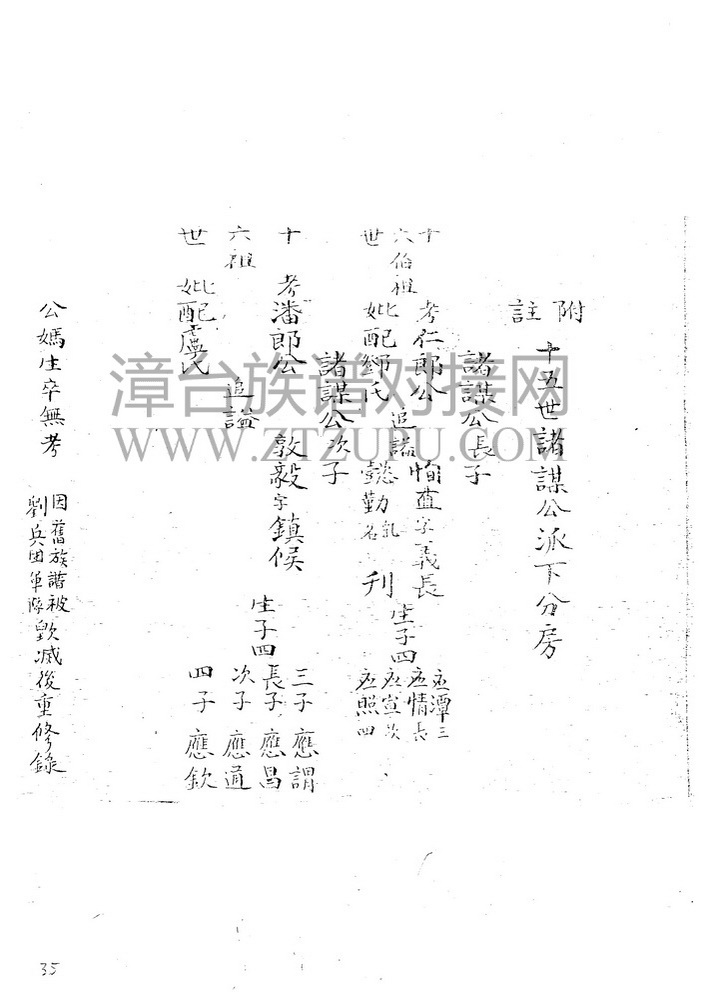 附註
十五世諸謀公派下分房
諸謀公長子
十六世
伯祖
考仁郎公
妣配鄧氏
追諡
恂直字義長
懿勤
名
刊
生子四
應潭三
應情長
應宣次
應照四
諸謀公次子
十六世
祖
考潘郎公
妣配盧氏
追諡
敦毅字鎮候
生子四
三子應謂
長子應昌
次子應道
四子應欽
公媽生卒無考
因舊族譜被毀滅後重修錄
劉兵团軍隊
漳台族谱对接网
WWW.ZTZUPU.COM
35